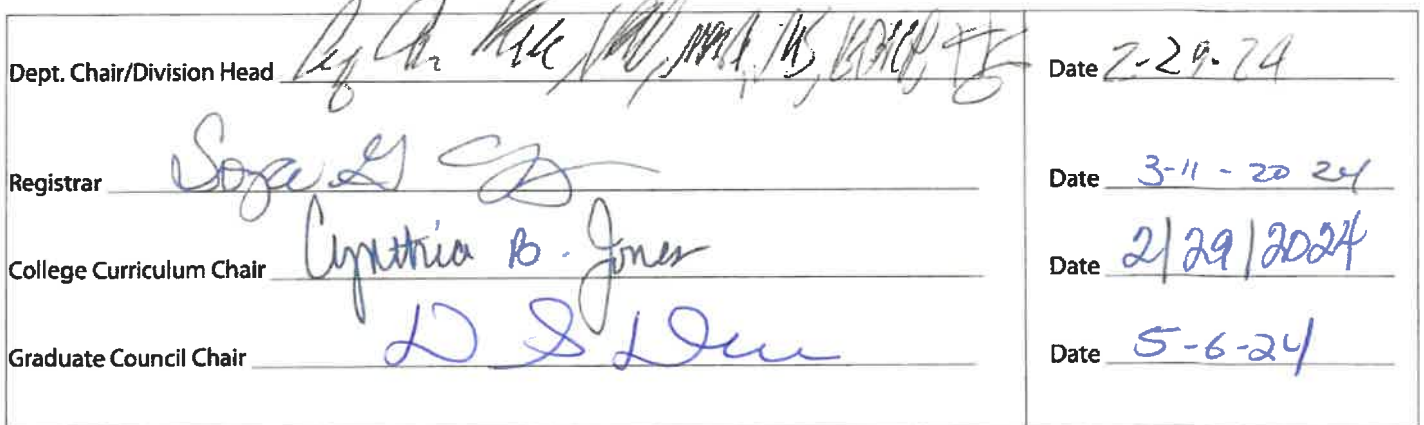 Dept. Chair/Division Head Date 2-29-24
Registrar Date 3-11-2024
College Curriculum Chair Cynthia B. Jones Date 2/29/2024
Graduate Council Chair Date 5-6-24